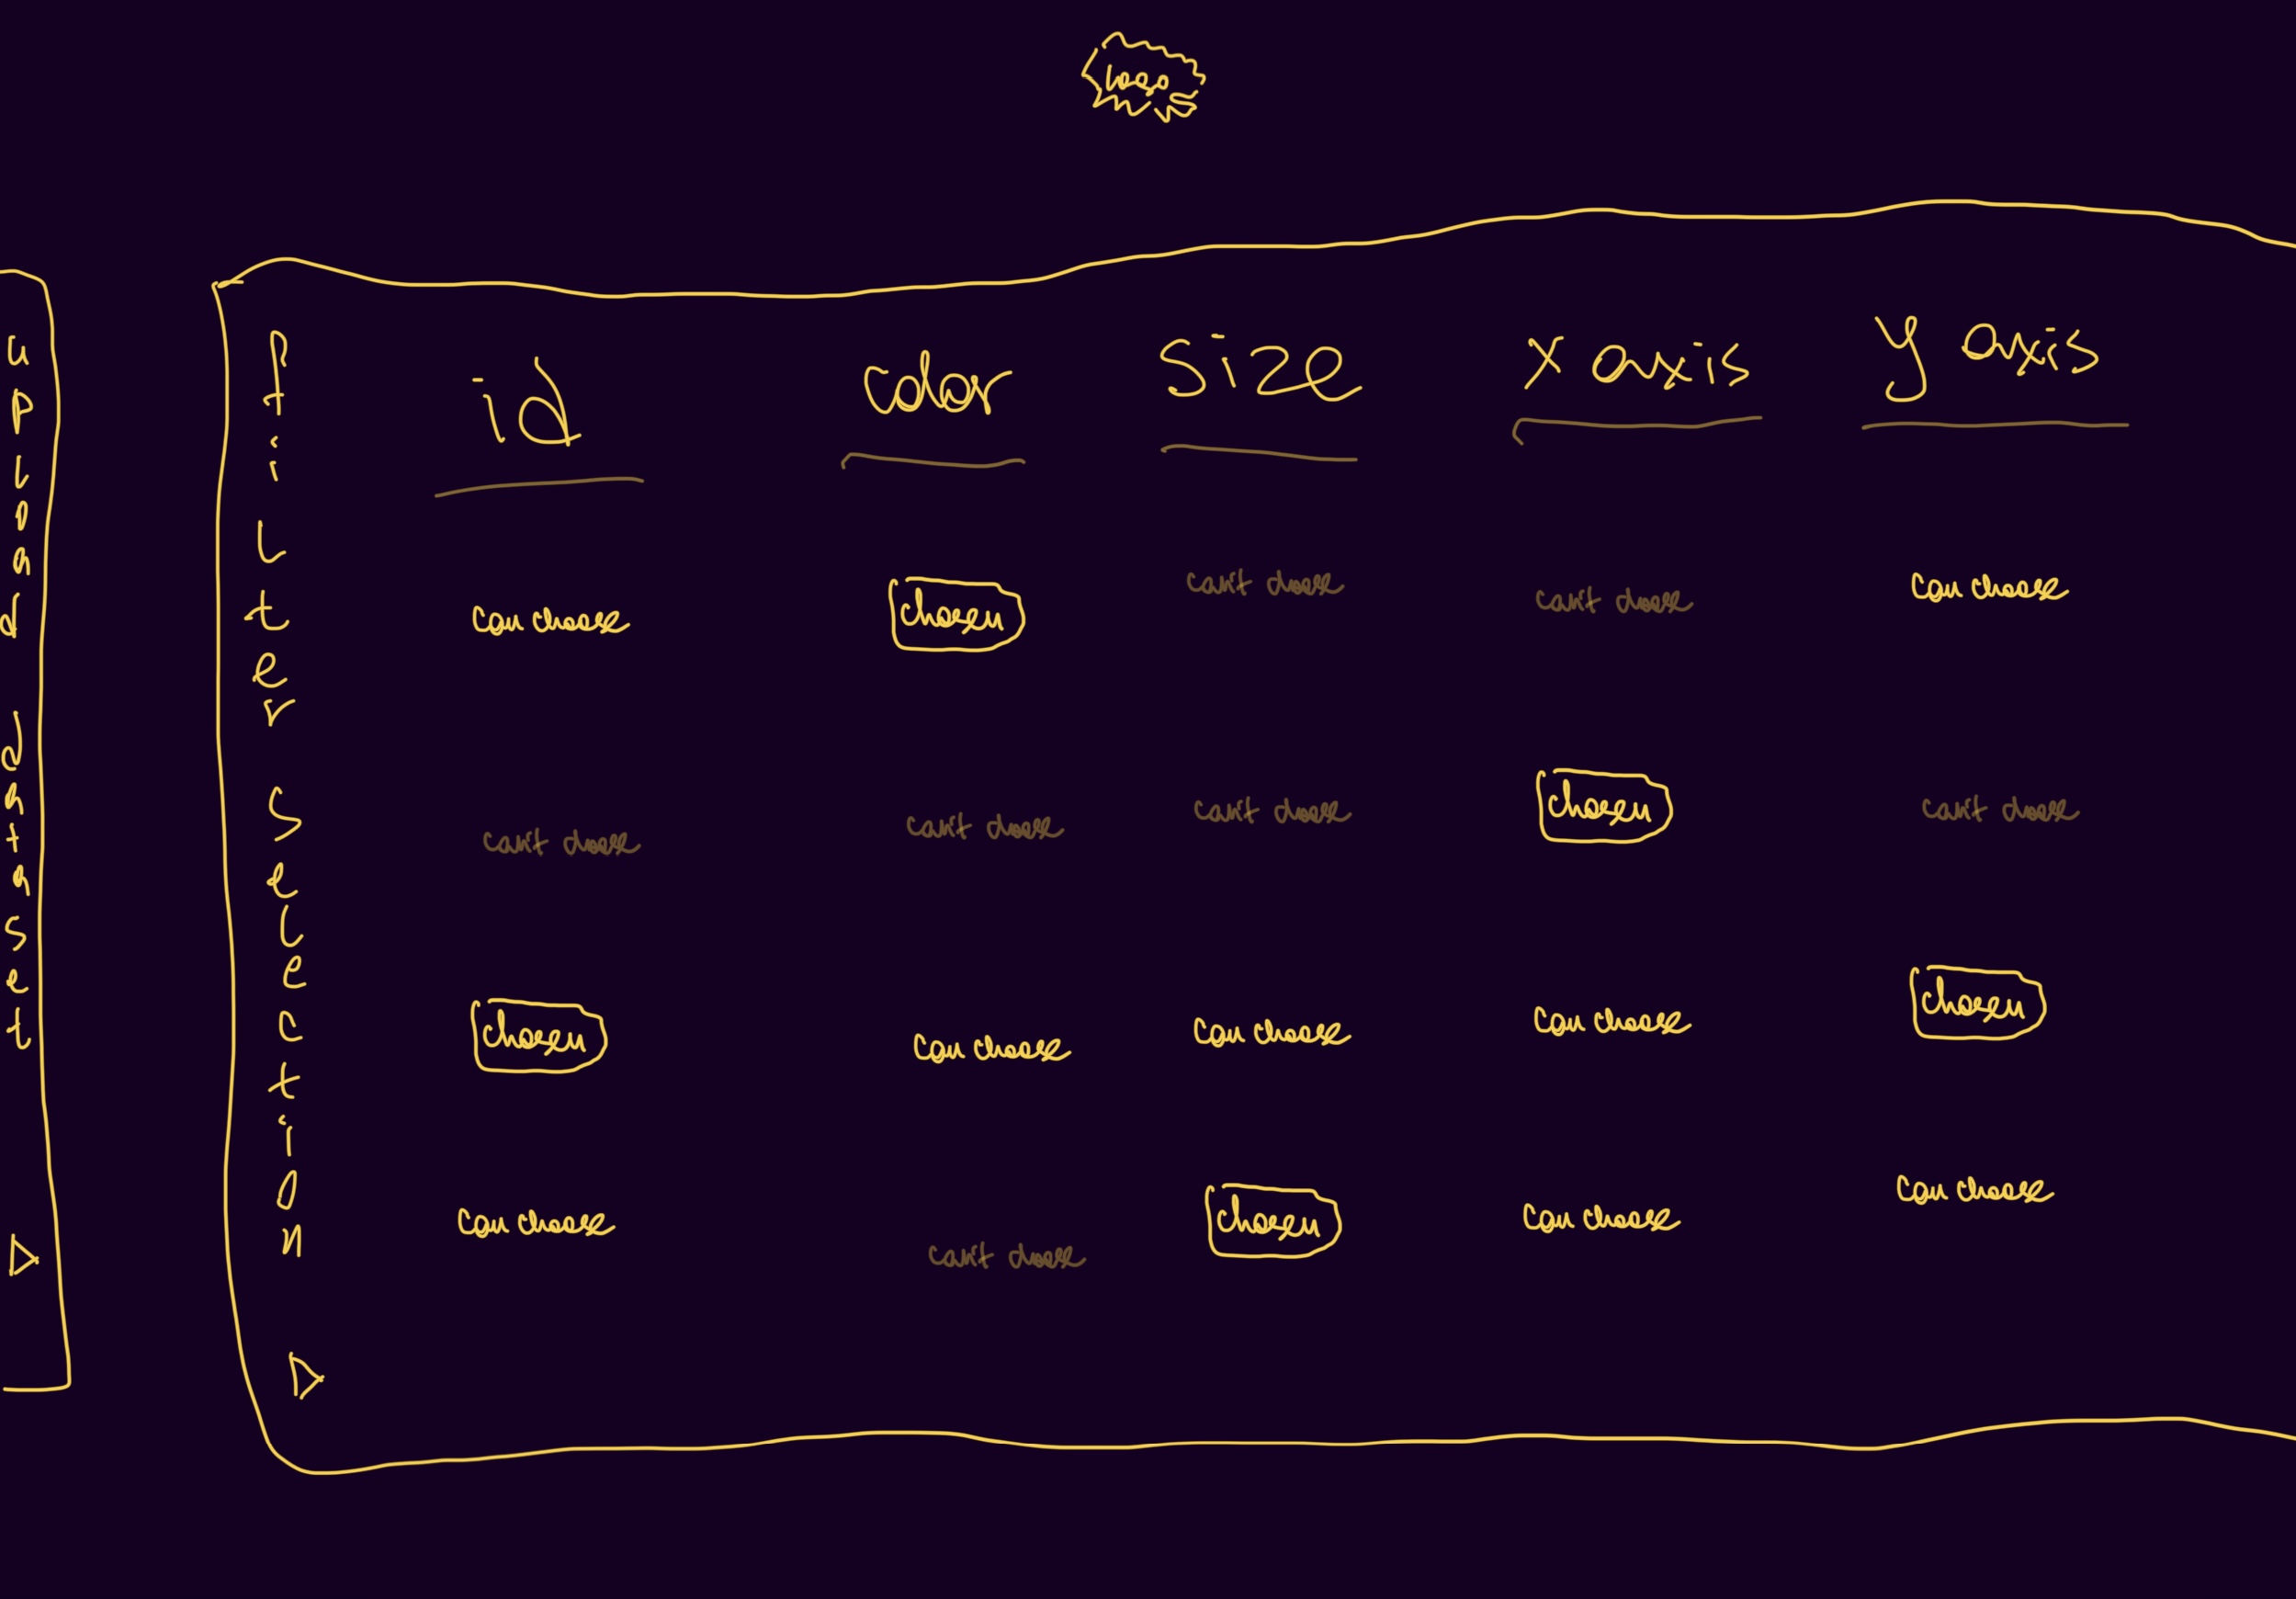 Logo
upload dataset
filter selection
id color size x axis y axis
can choose chosen can't choose can't choose can choose
can't choose can't choose can't choose chosen can't choose
chosen can choose can choose can choose chosen
can choose can't choose chosen can choose can choose